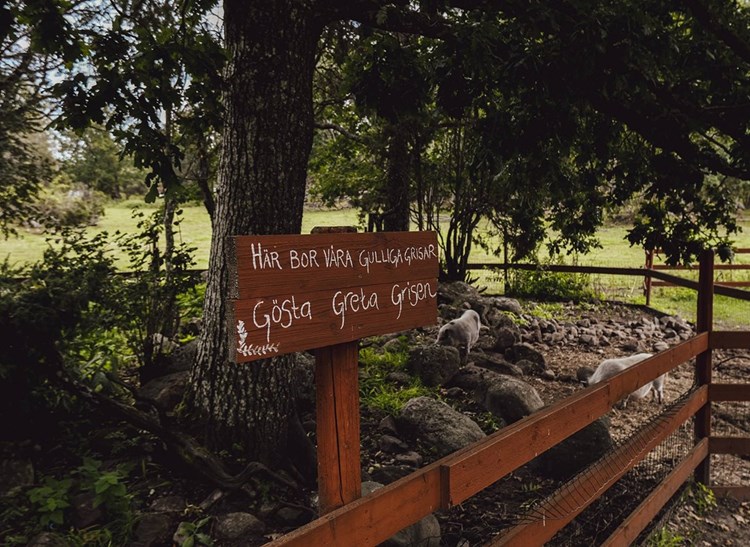 HÄR BOR VÅRA GULLIGA GRISAR
Gösta Greta Grisen